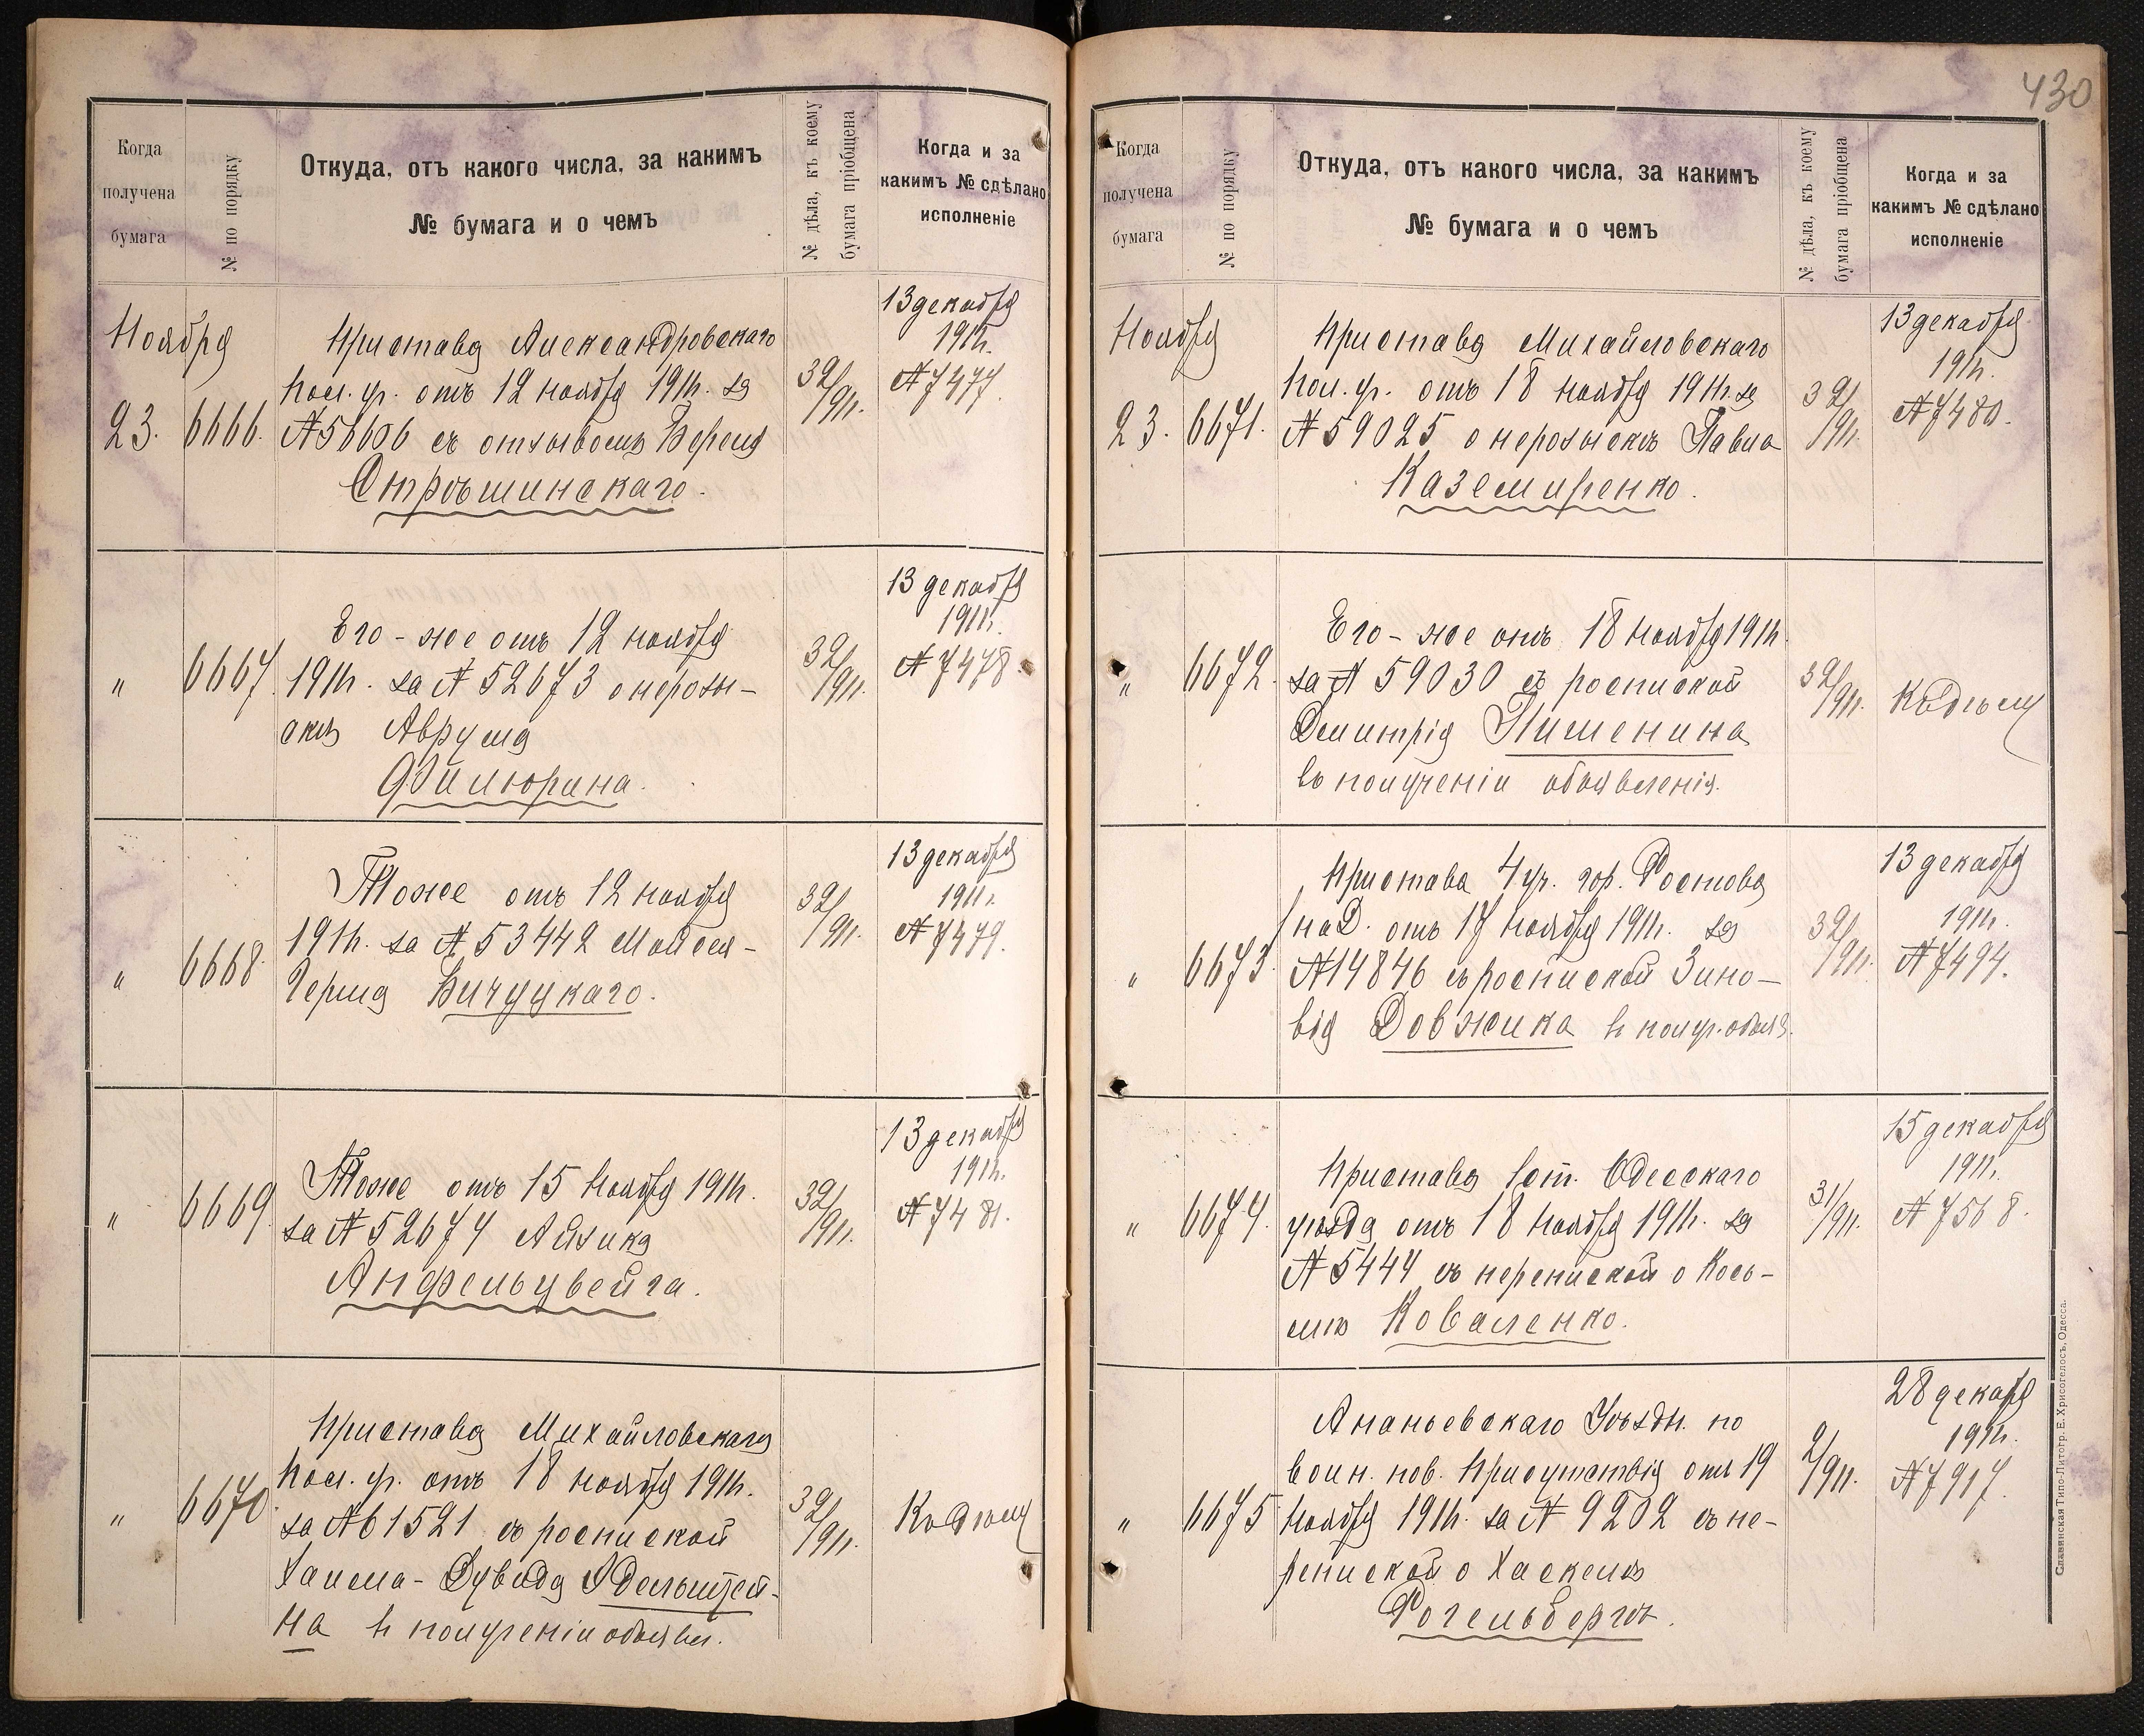 430
Когда
получена
бумага
№ по порядку
Откуда, отъ какого числа, за какимъ
№ бумага и о чемъ
№ дѣла, къ коему
бумага пріобщена
Когда и за
какимъ № сдѣлано
исполненіе
Ноября
23.
6666.
Пристава Александровскаго
пол. уч. отъ 12 ноября 1911г. за
№ 56606 съ отзывомъ Береля
Стрѣшинскаго.
32/911.
13 декабря
1911г.
№ 7477.
"
6667.
Его-же отъ 12 ноября
1911г. за № 52673 о нерозы-
скѣ Аврума
Филюрина.
32/911.
13 декабря
1911г.
№ 7478.
"
6668.
Тоже отъ 12 ноября
1911г. за № 53442 Мойсея-
Герша Бичуцкаго.
32/911.
13 декабря
1911г.
№ 7479.
"
6669.
Тоже отъ 15 ноября 1911г.
за № 52674 Айзика
Анфельцвейга.
32/911.
13 декабря
1911г.
№ 7481.
"
6670.
Пристава Михайловскаго
пол. уч. отъ 18 ноября 1911г.
за № 61521 съ роспиской
Хаима-Дувида Эдельштей-
на въ полученіи объявл.
32/911.
Къ дѣлу
Когда
получена
бумага
№ по порядку
Откуда, отъ какого числа, за какимъ
№ бумага и о чемъ
№ дѣла, къ коему
бумага пріобщена
Когда и за
какимъ № сдѣлано
исполненіе
Ноября
23.
6671.
Пристава Михайловскаго
пол. уч. отъ 18 ноября 1911г. за
№ 59025 о нерозыскѣ Павла
Каземиренко.
32/911.
13 декабря
1911г.
№ 7480.
"
6672.
Его-же отъ 18 ноября 1911г.
за № 59030 съ роспиской
Димитрія Пишенина
въ полученіи объявленія.
32/911.
Къ дѣлу
"
6673.
Пристава 4 уч. гор. Ростова
н/Д. отъ 17 ноября 1911г. за
№ 14846 съ роспиской Зино-
вія Довжика въ получ. объявл.
32/911.
13 декабря
1911г.
№ 7494.
"
6674.
Пристава 1 ст. Одесскаго
уѣзда отъ 18 ноября 1911г. за
№ 5444 съ перепиской о Кось-
мѣ Коваленко.
31/911.
15 декабря
1911г.
№ 7568.
"
6675
Ананьевскаго Уѣздн. по
воин. пов. Присутствія отъ 19
ноября 1911г. за № 9202 съ пе-
репиской о Хаскелѣ
Рогельбергѣ.
2/911.
28 декабря
1911г.
№ 7917.
Славянская Типо-Литогр. Е. Хрисогелосъ, Одесса.